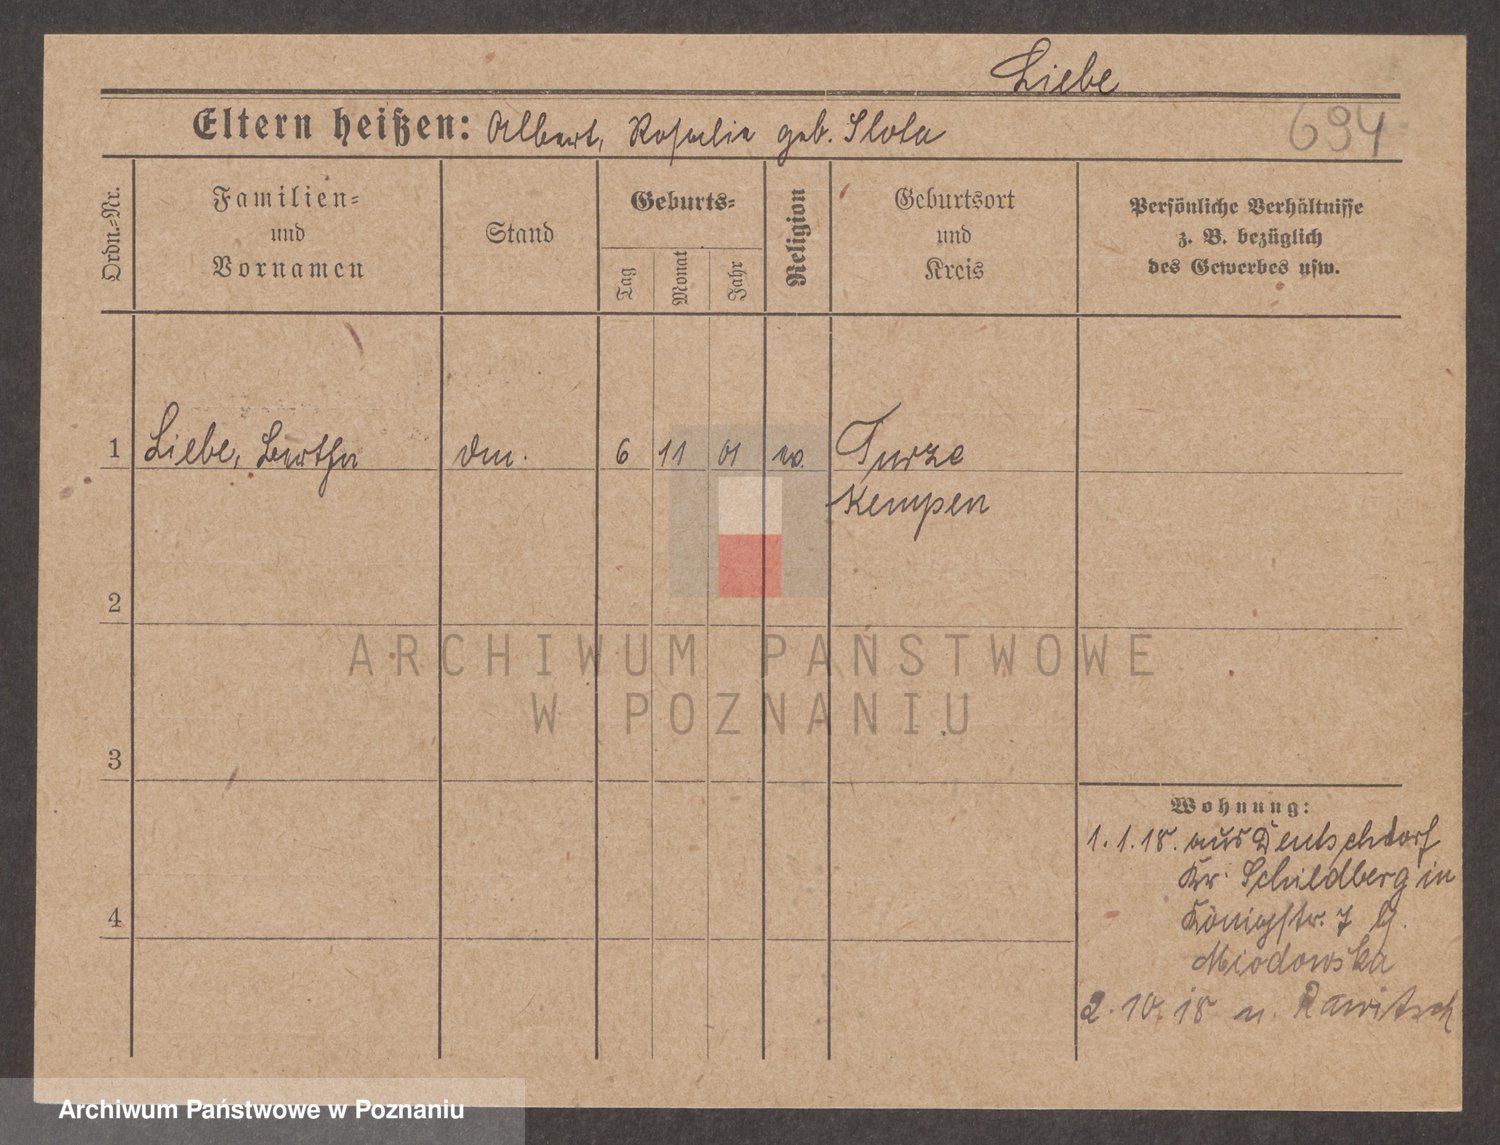 Liebe
Eltern heißen: Albert, Rosalie geb. Slota
694
Ordn.-Nr.
Familien-
und
Vornamen
Stand
Geburts-
Tag
Monat
Jahr
Religion
Geburtsort
und
Kreis
Persönliche Verhältnisse
z. B. bezüglich
des Gewerbes usw.
1 Liebe, Bertha 6 11 01 Turze
Kempen
2
ARCHIWUM PAŃSTWOWE
W POZNANIU
3
Wohnung:
1.1.18. aus Deutschdorf
Kr. Schildberg in
Königstr. 7 b.
4
Miodowska
2.10.18 n. Rawitsch
Archiwum Państwowe w Poznaniu